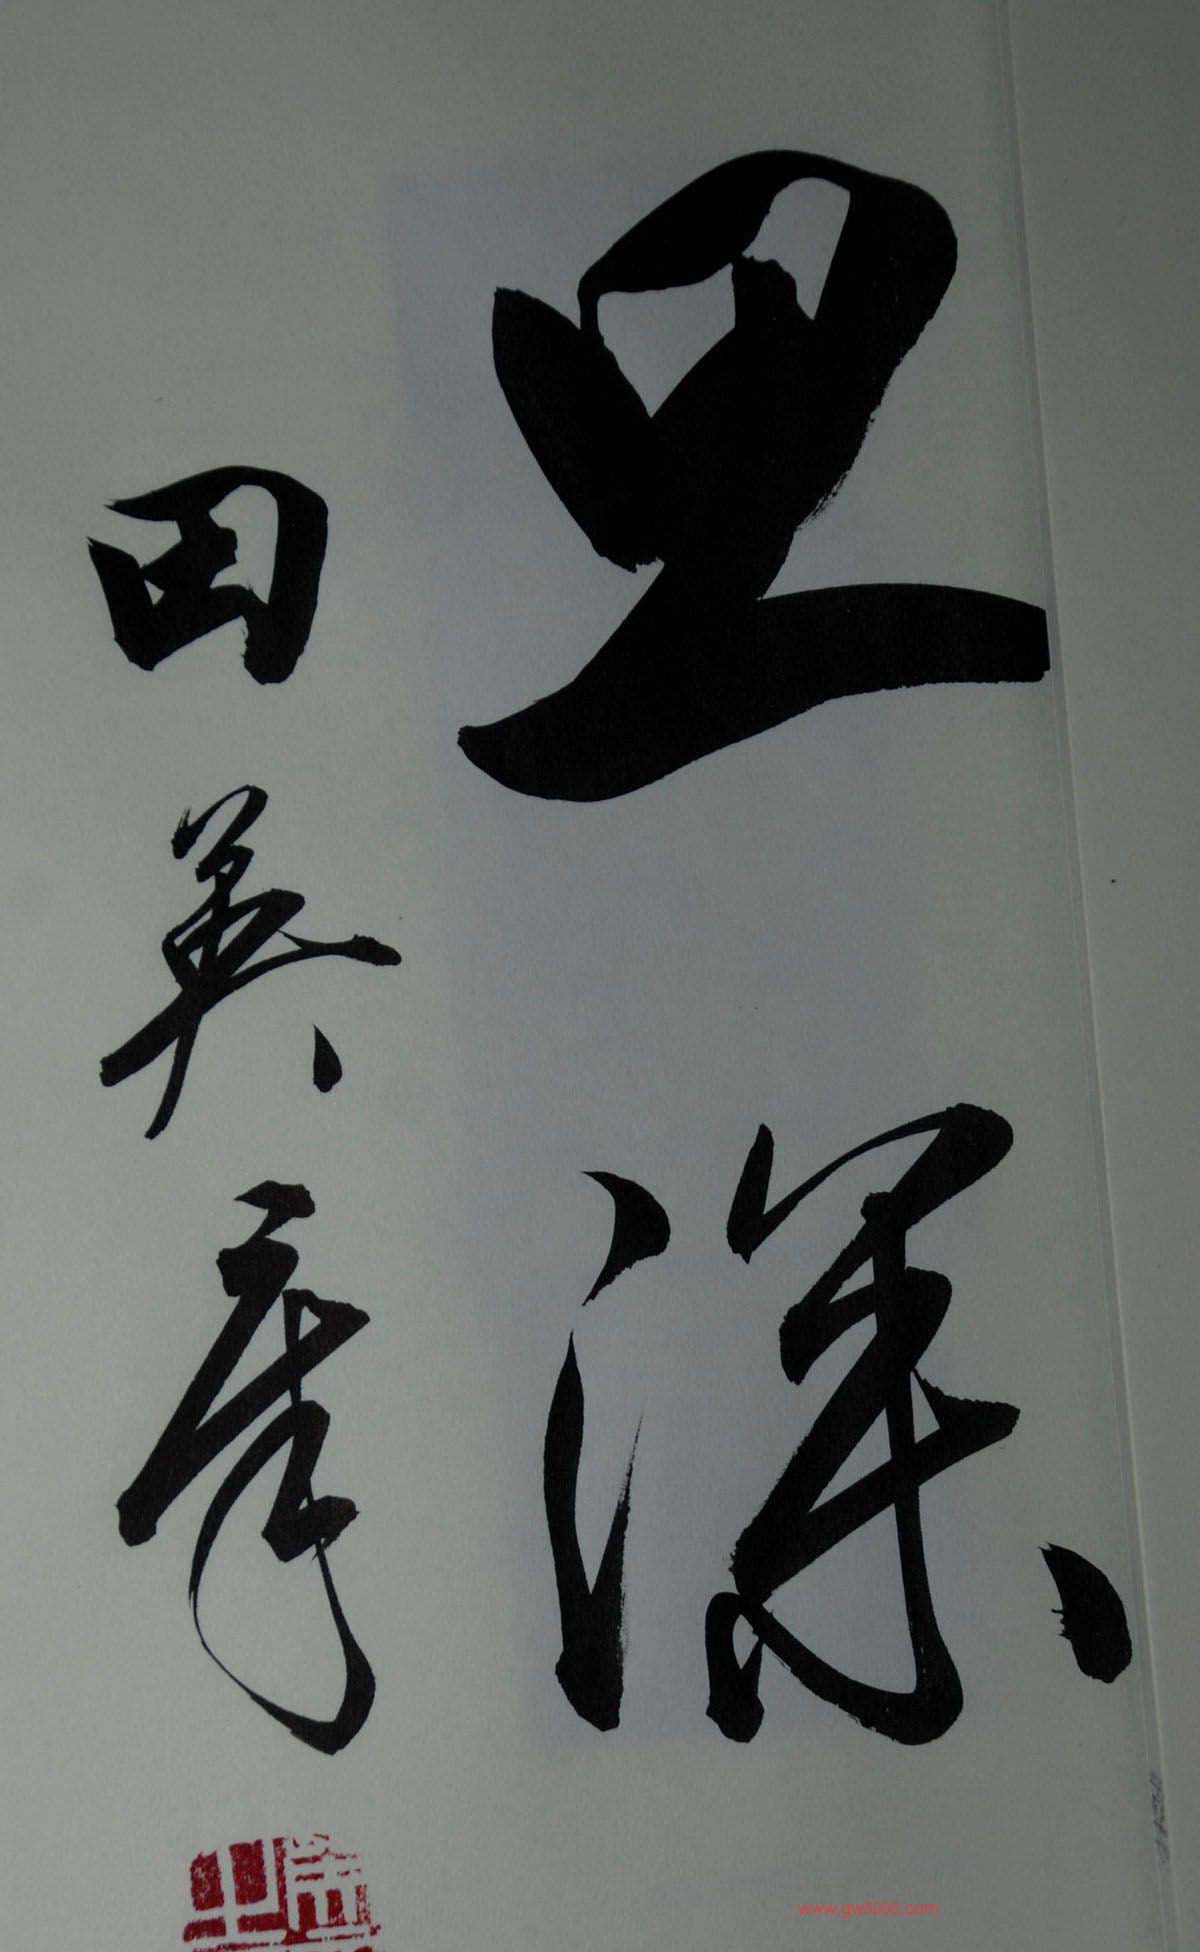 旦深
田英章
www.gw5000.com